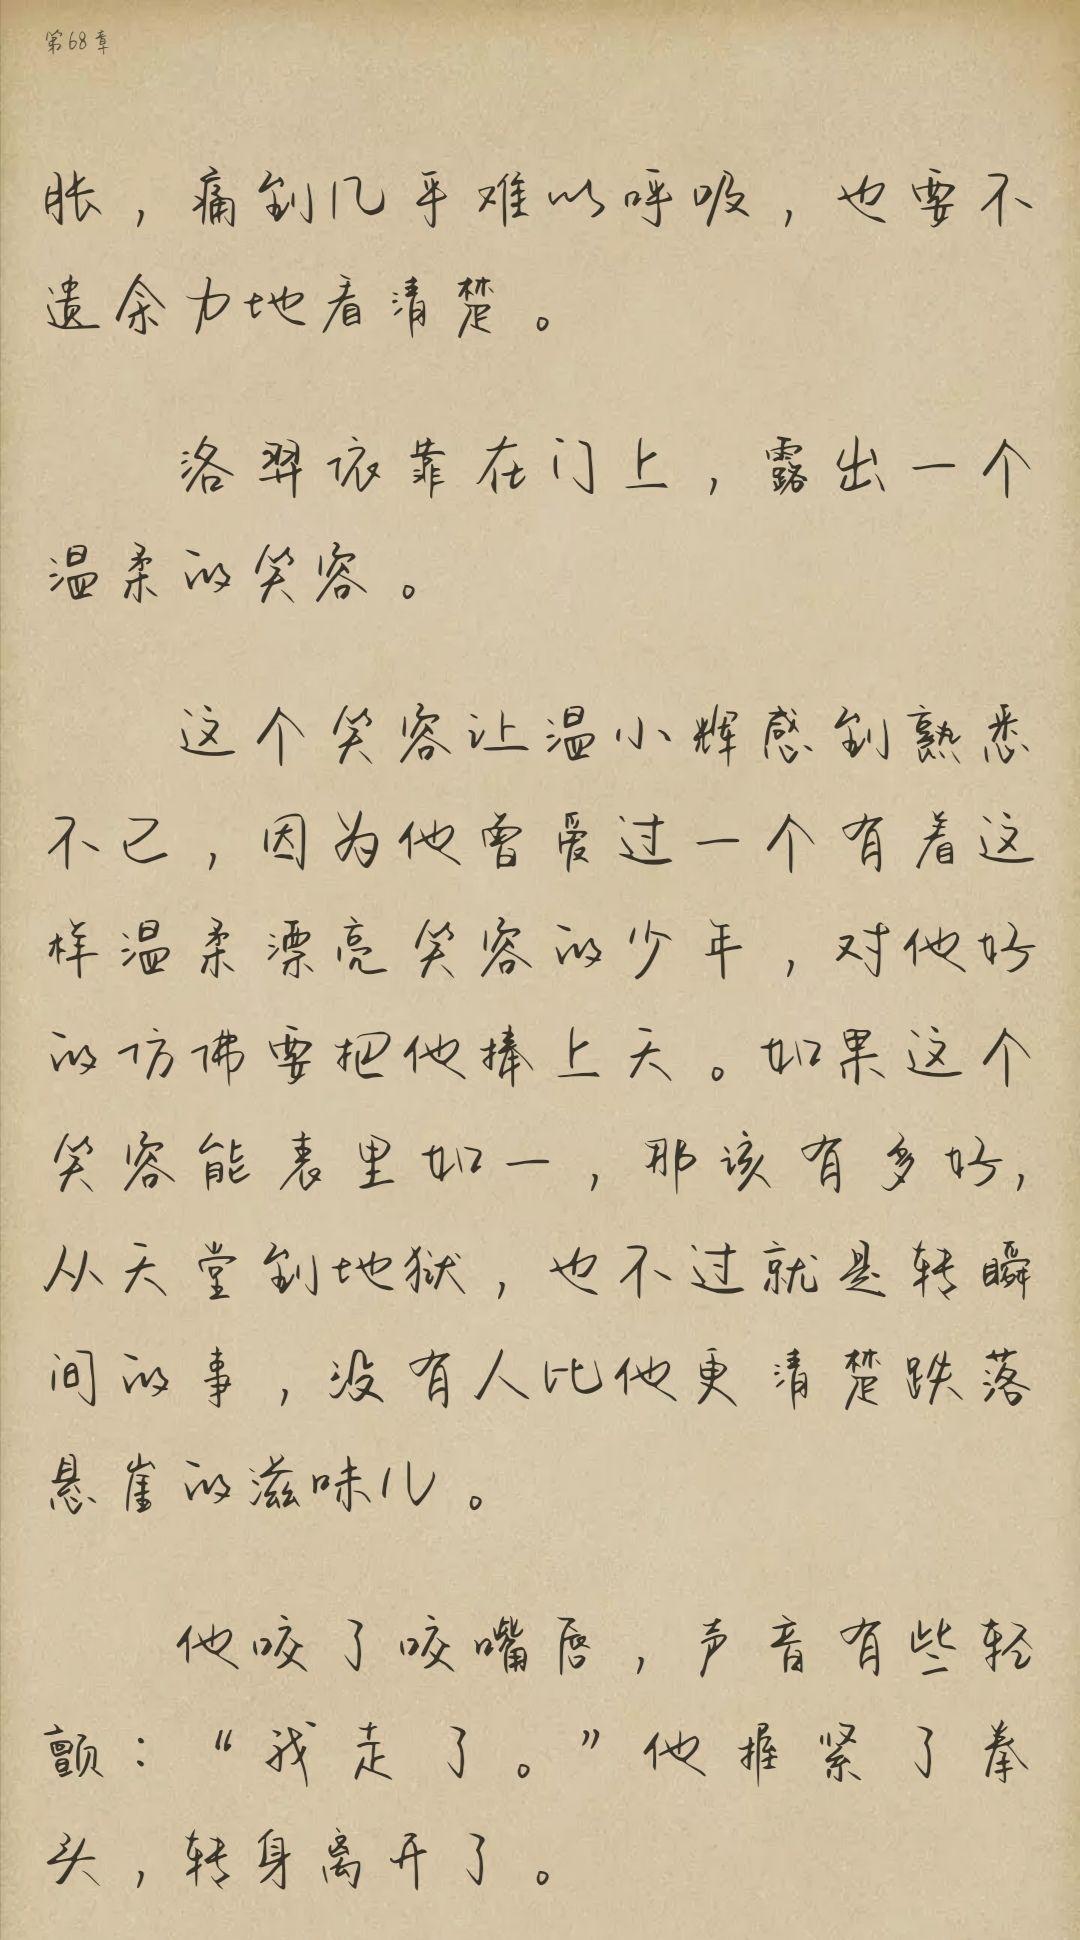 第68章
胀，痛到几乎难以呼吸，也要不
遗余力地看清楚。
洛羿依靠在门上，露出一个
温柔的笑容。
这个笑容让温小辉感到熟悉
不已，因为他曾爱过一个有着这
样温柔漂亮笑容的少年，对他好
的仿佛要把他捧上天。如果这个
笑容能表里如一，那该有多好，
从天堂到地狱，也不过就是转瞬
间的事，没有人比他更清楚跌落
悬崖的滋味儿。
他咬了咬嘴唇，声音有些轻
颤：“我走了。”他握紧了拳
头，转身离开了。